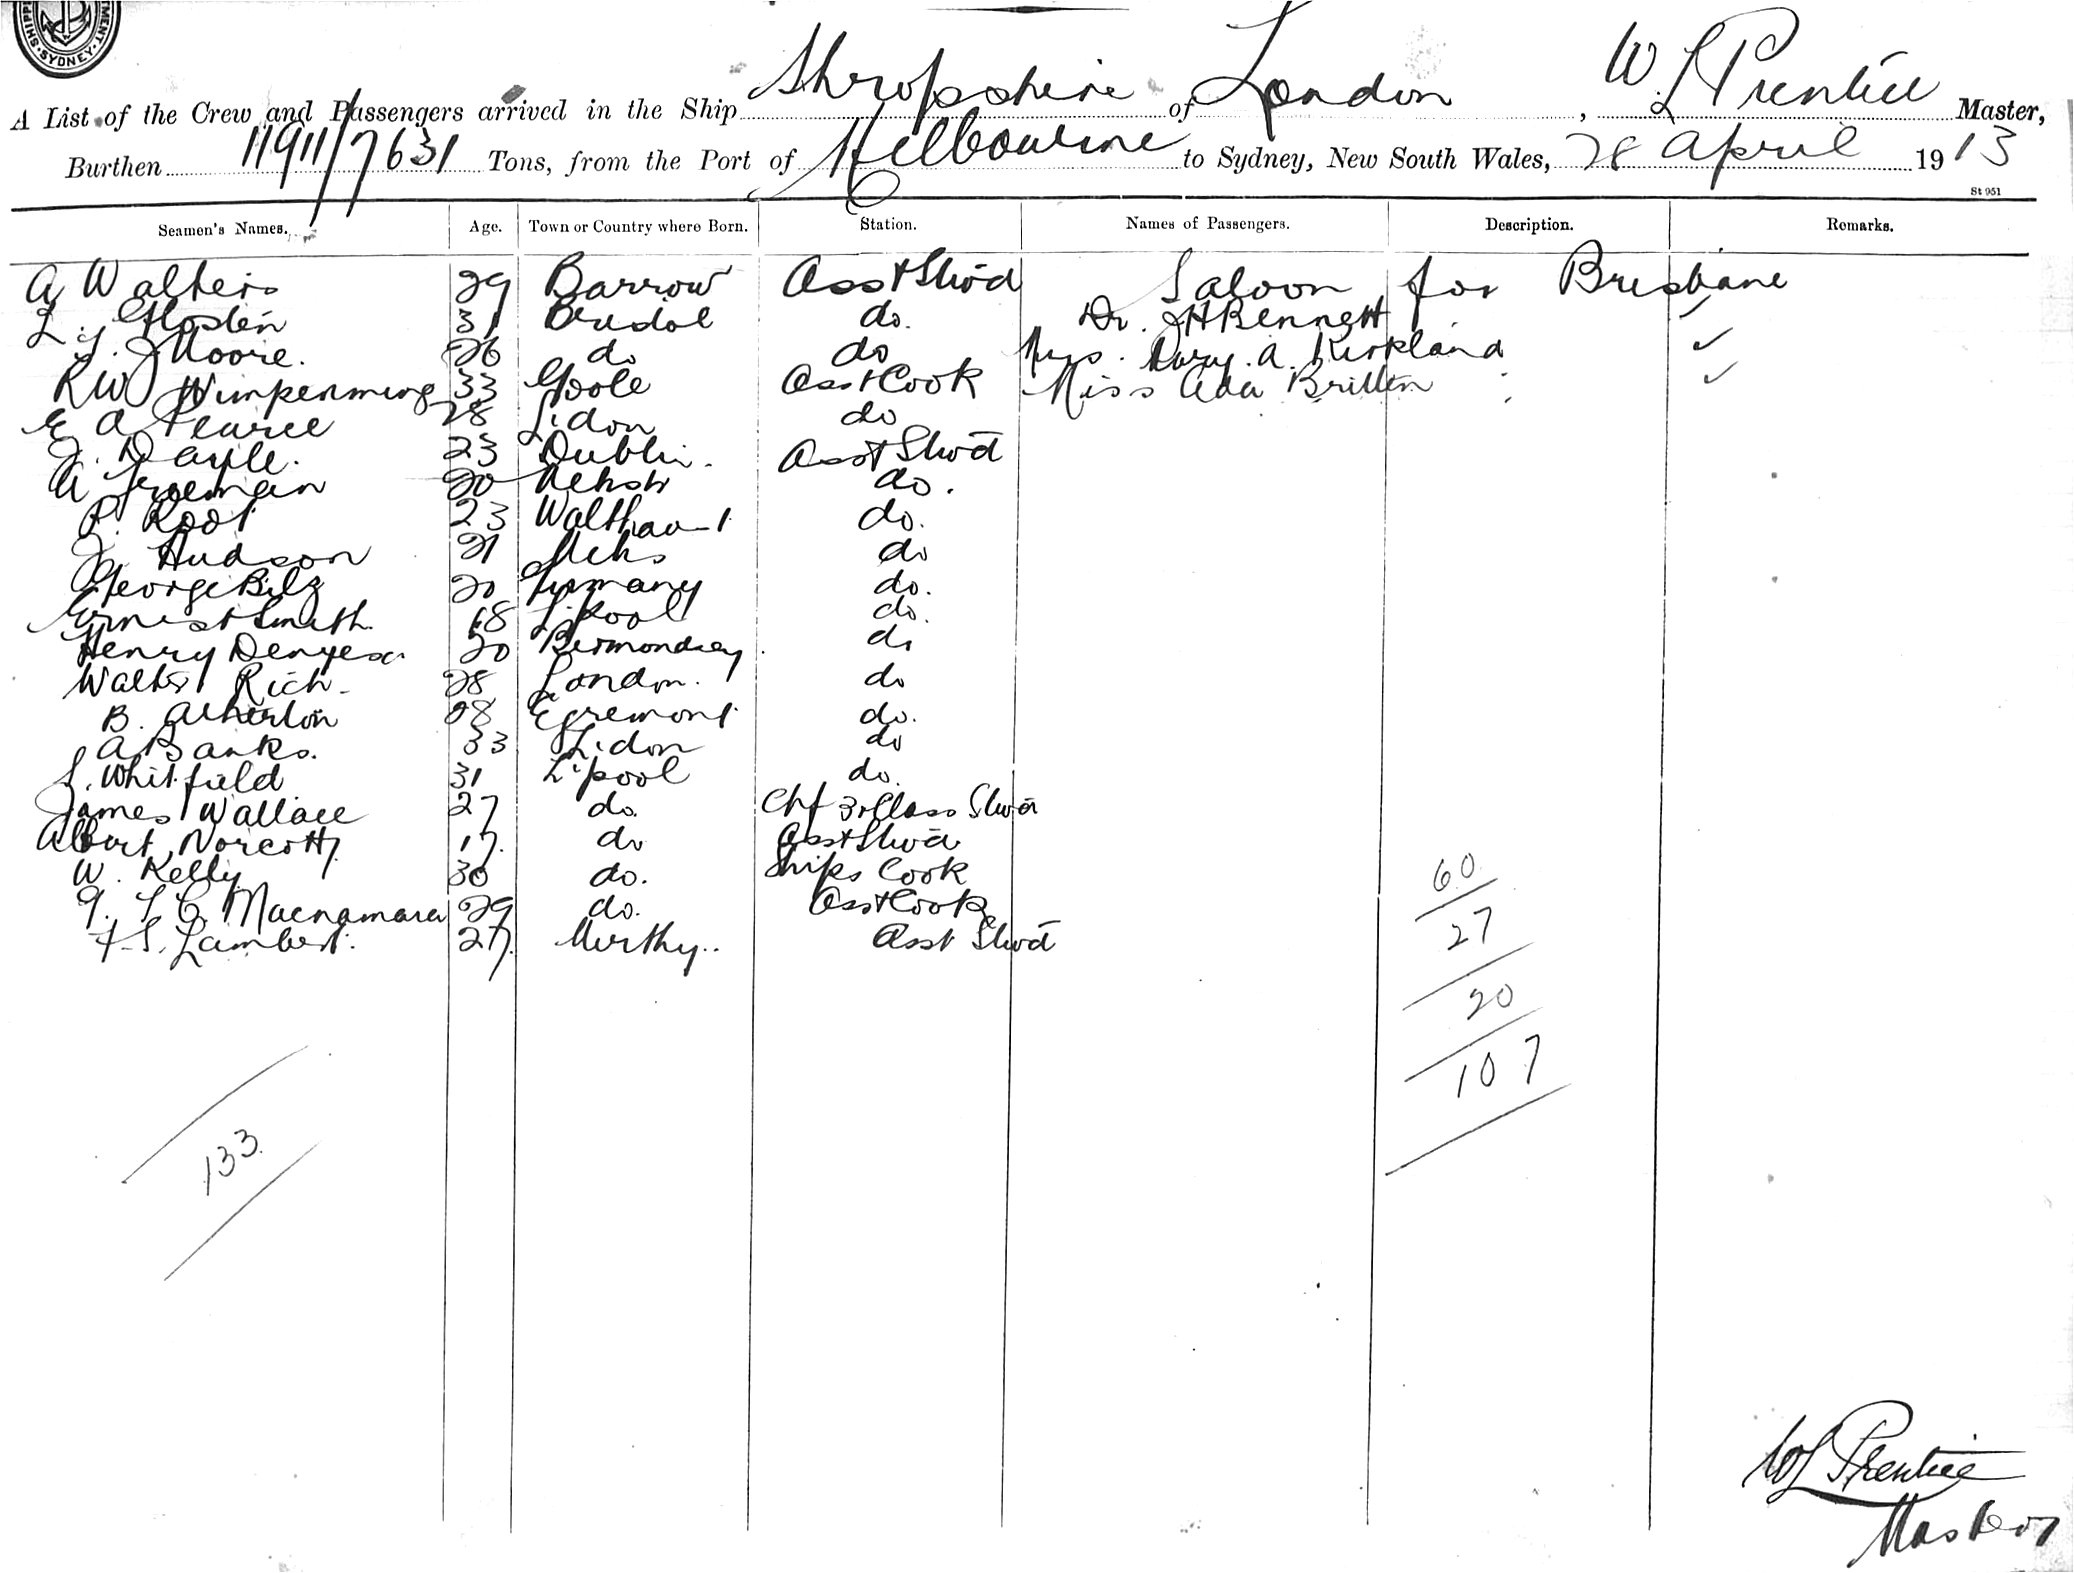 SHIPPING SYDNEY
A List of the Crew and Passengers arrived in the Ship Shropshire of London, W. L Prentice Master,
Burthen 11911/7631 Tons, from the Port of Melbourne to Sydney, New South Wales, 28 April 1913
St 951
Seamen's Names. Age. Town or Country where Born. Station. Names of Passengers. Description. Remarks.
A Walters 29 Barrow Asst Stwd Saloon for Brisbane
31 Bristol do. Dr. J H Bennett
J Moore. 26 do do Mrs. Mary. A. Kirkland ✓
R W Wimpenning 33 Goole Asst Cook Miss Ada Britten ✓
E A Pearce 28 L'don do
J. Dayle. 23 Dublin. Asst Stwd
A Freeman 20 do.
P. Root 23 do.
J. Hudson 21 do
George Bilz 20 Germany do.
Ernest Smith. 18 L'pool do.
Henry 20 Bermondsey do
Walter Rich. 28 London. do
B. Atherton 28 Egremont do.
A Banks. 33 L'don do
S. Whitfield 31 L'pool do.
James Wallace 27 do. Chf 3rd Class Stwd
Albert Norcott 17. do Asst Stwd
W. Kelly 30 do. Ships Cook
L C Macnamara 29 do. Asst Cook
F. S. Lambert. 27. Merthy.. Asst Stwd
60
27
20
107
133
W L Prentice
Master